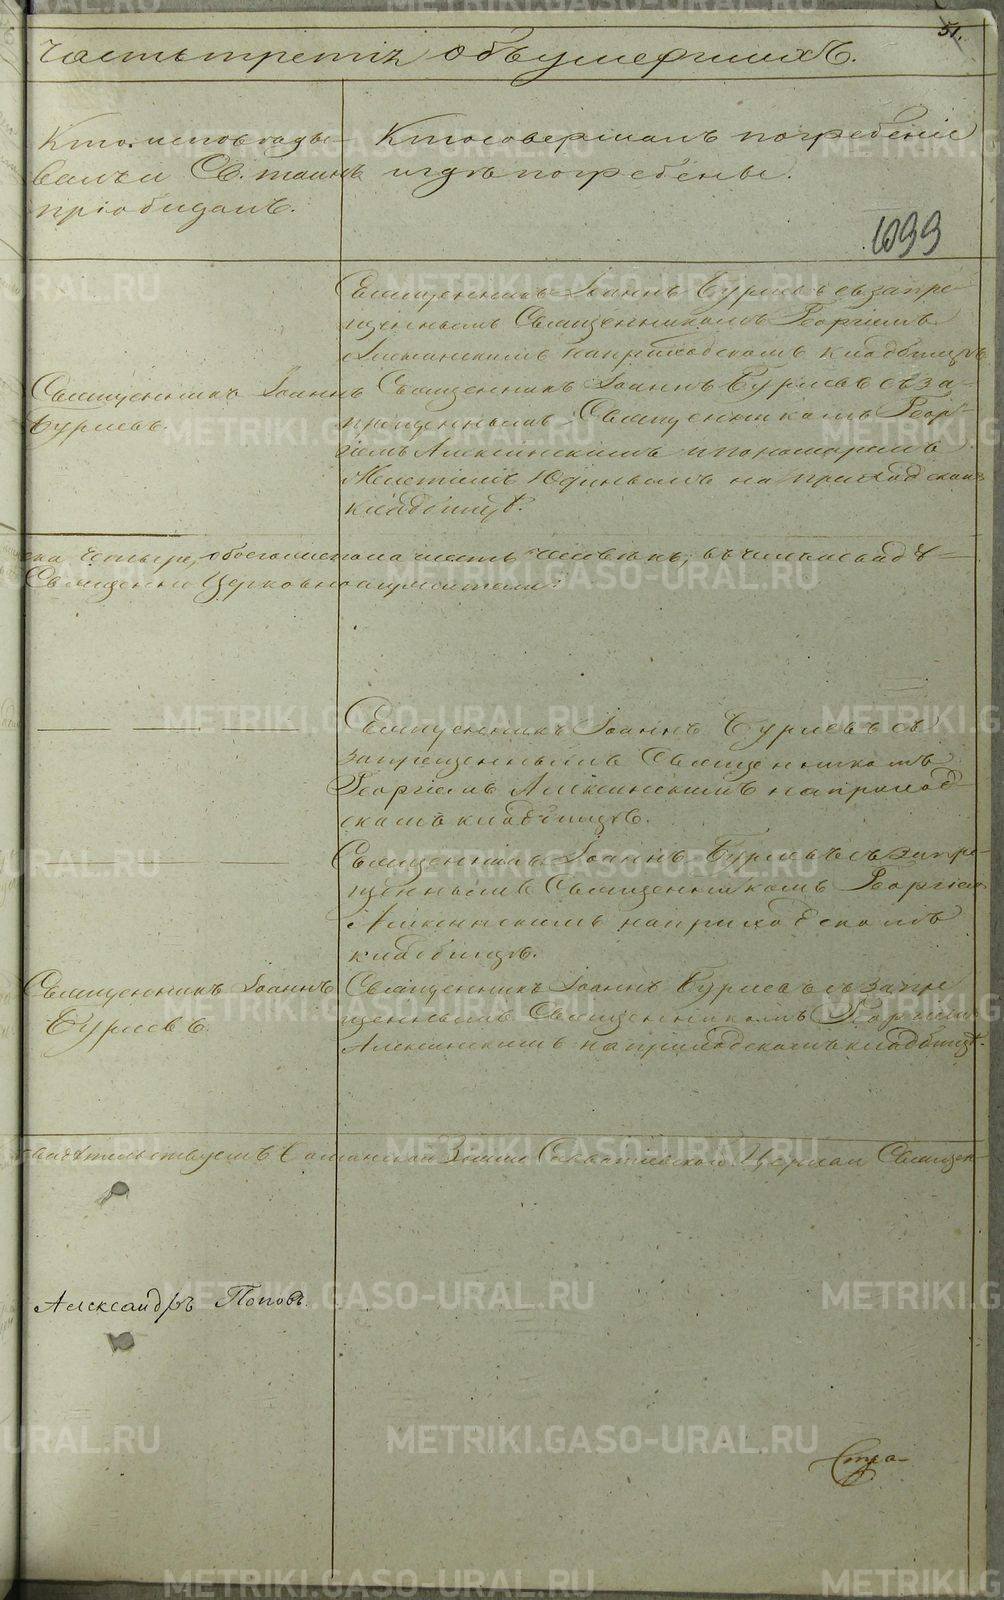 51.
Часть третія объ умершихъ.
Кто исповѣды-
валъ и Св. таинъ
пріобщалъ.
Кто совершалъ погребеніе
и гдѣ погребены.
1099
Священникъ Іоаннъ Бурлевъ съ запре-
щеннымъ Священникомъ Георгіемъ
Алексинскимъ на приходскомъ кладбищѣ
Священникъ Іоаннъ
Бурлевъ.
Священникъ Іоаннъ Бурлевъ съ за-
прещеннымъ Священникомъ Геор-
гіемъ Алексинскимъ и пономаремъ
Юдинымъ на приходскомъ
кладбищѣ.
четыре, обоего пола шесть человѣкъ, въ чемъ
Священно Церковнослужители:
Священникъ Іоаннъ Бурлевъ съ
запрещеннымъ Священникомъ
Георгіемъ Алексинскимъ на приход-
скомъ кладбищѣ.
Священникъ Іоаннъ Бурлевъ съ запре-
щеннымъ Священникомъ Георгіемъ
Алексинскимъ на приходскомъ
кладбищѣ.
Священникъ Іоаннъ
Бурлевъ.
Священникъ Іоаннъ Бурлевъ съ запре
щеннымъ Священникомъ Георгіемъ
Алексинскимъ на приходскомъ кладбищѣ.
свидѣтельствуемъ Церкви Священ-
Александръ Поповъ.
METRIKI.GASO-URAL.RU